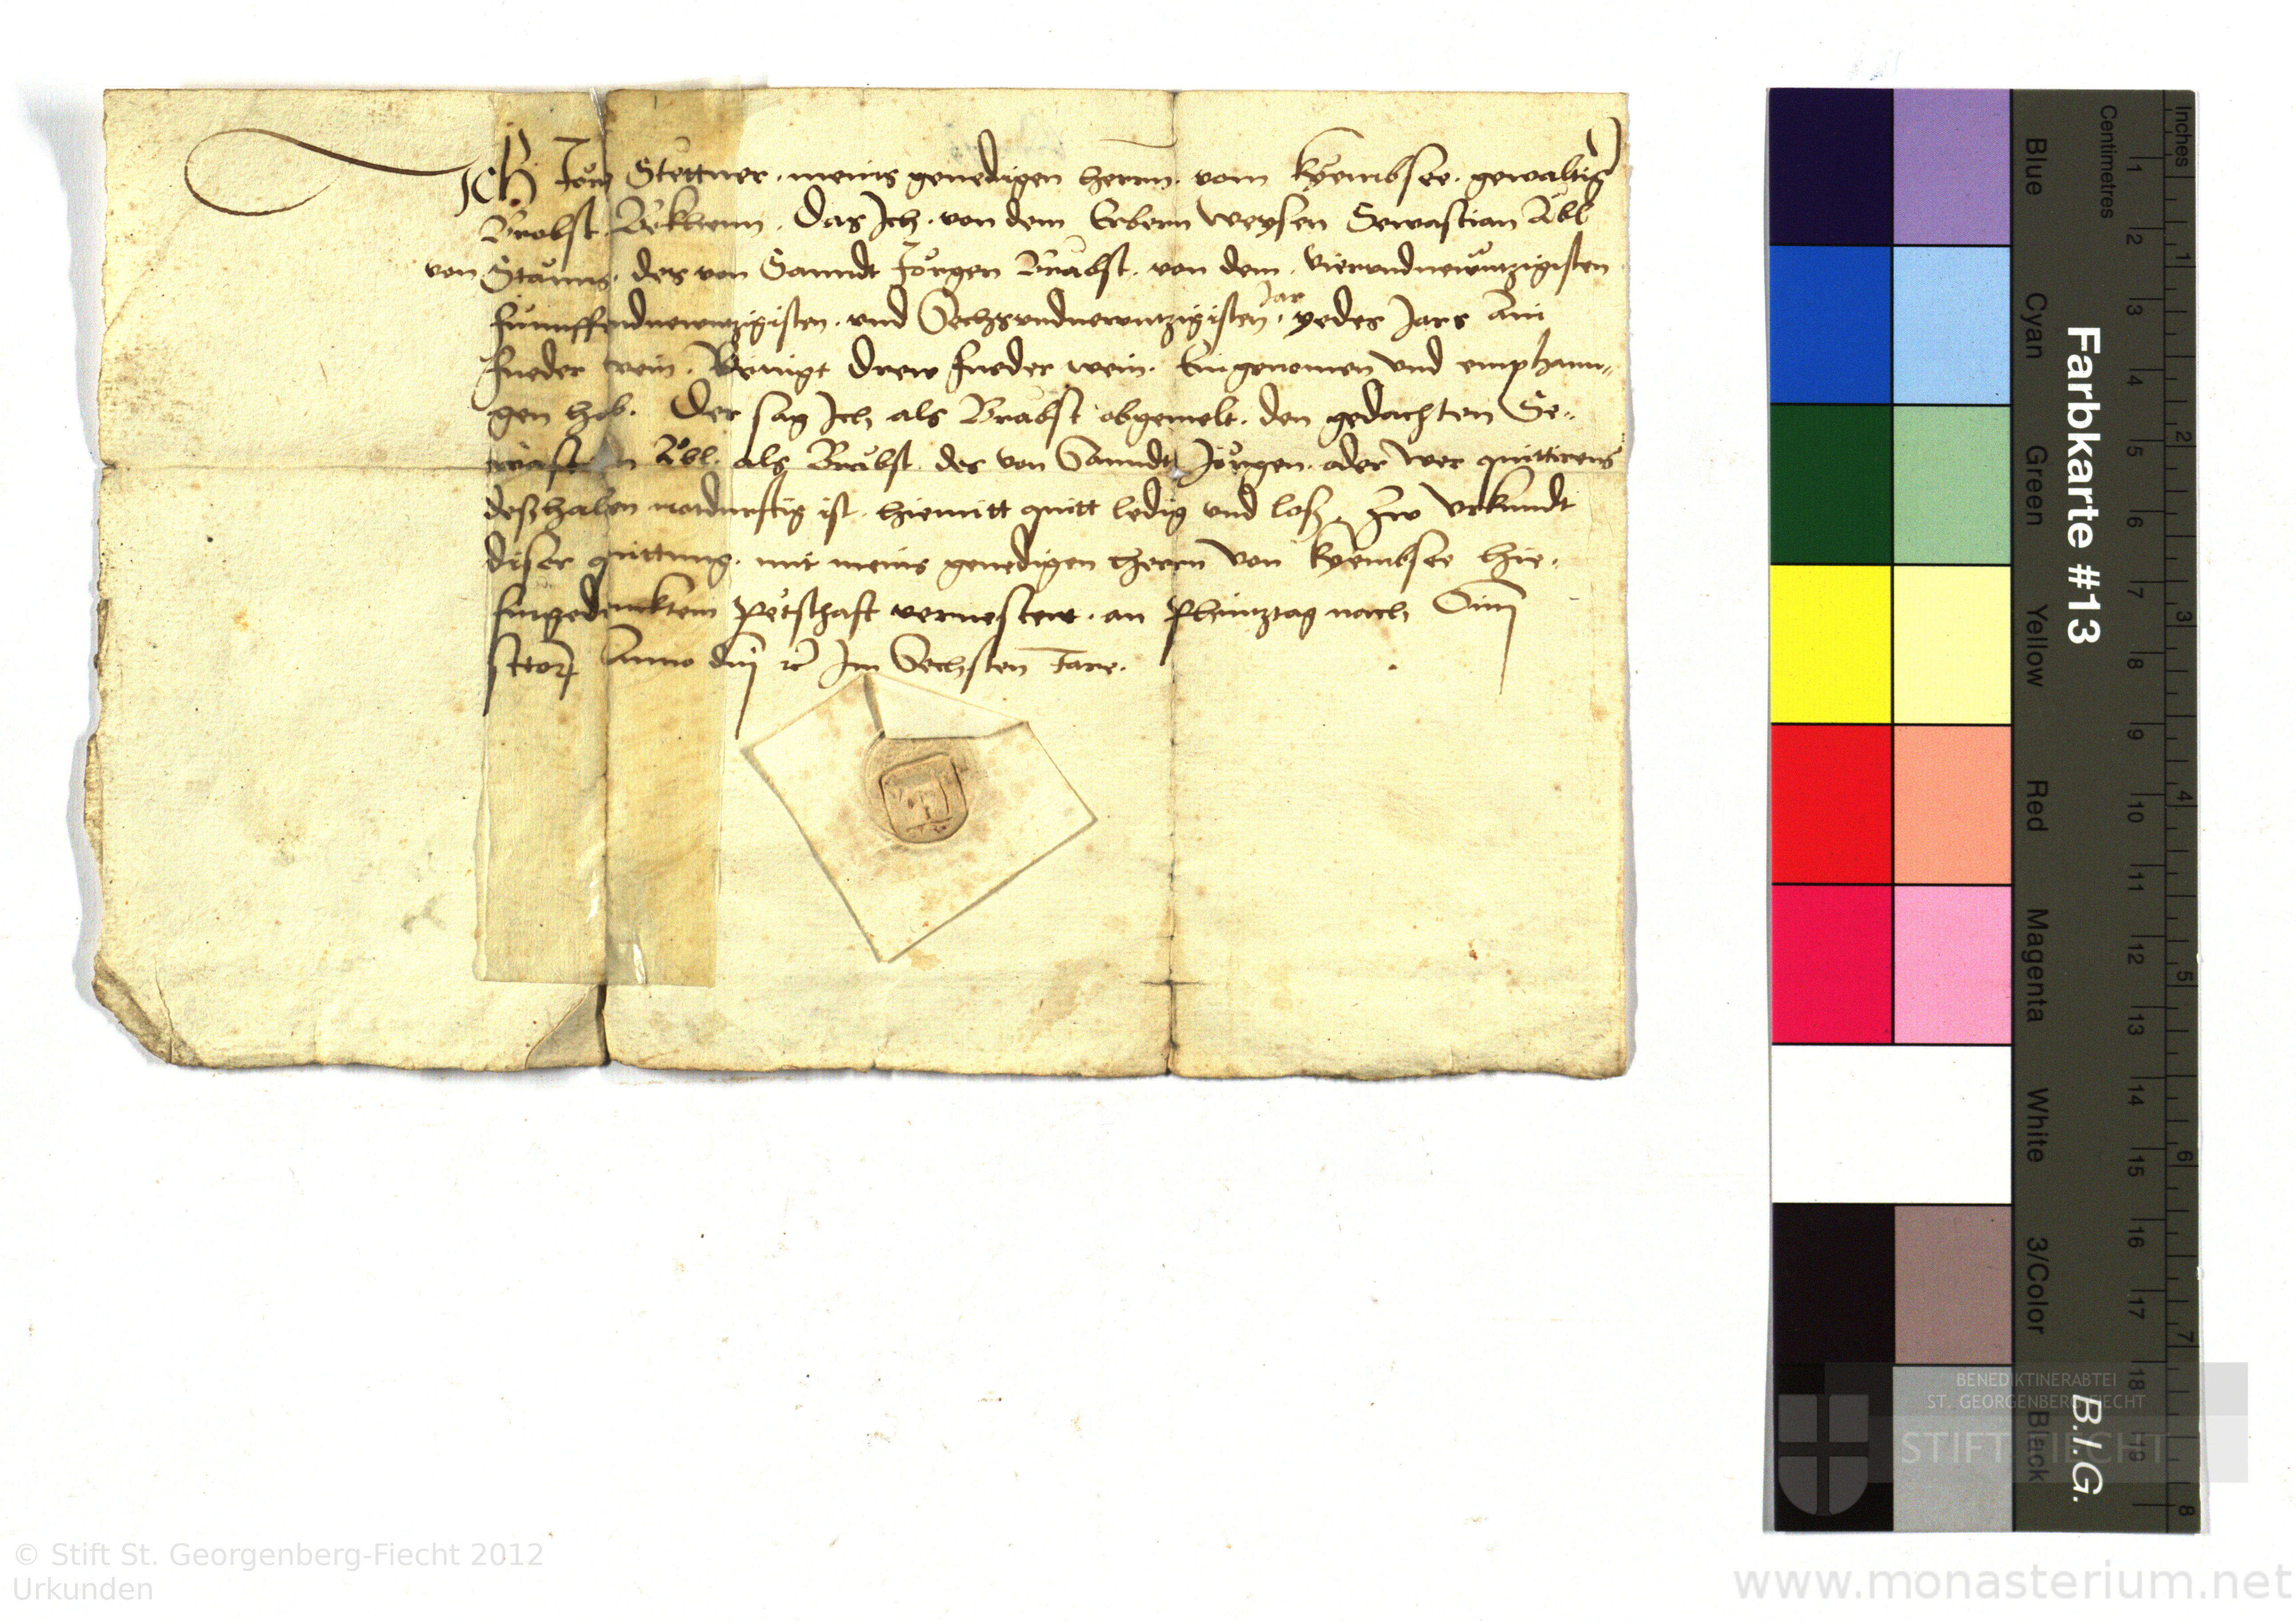 Ich Jorg Stettner . meins genedigen herrn . vom kyembsee . gewaltig
Brobst . Bekhenn . Das Ich . von dem Erbern weysen Sewastian Abl
von Stanns . des von Sanndt Jorgen Brabst . von dem . vierundnewntzigisten
funnffundnewntzigisten . und Sechsundnewntzigisten Jar . yedes Jars Ain
fueder wein . Bringt drew fueder wein . Eingenomen und emphann-
gen hab . Des sag Ich als Brabst obgemelt . den gedachten Se-
wastian Abl . als Brabst des von Sanndt Jorgen . oder wer quittirens
deßhalben notdurftig ist . hiemitt quitt ledig und loß . Zw urkundt
diser quittung . mit meins genedigen herrn von kyembsee hie-
furgedrucktem petschaft vernestent . an phintztag nach
Anno dni Im Sechsten Jare .
Farbkarte #13
B.I.G.
Inches
Centimetres
Blue
Cyan
Green
Yellow
Red
Magenta
White
3/Color
Black
1 2 3 4 5 6 7 8 9 10 11 12 13 14 15 16 17 18 19
1 2 3 4 5 6 7 8
BENEDIKTINERABTEI
ST. GEORGENBERG-FIECHT
STIFT FIECHT
© Stift St. Georgenberg-Fiecht 2012
Urkunden
www.monasterium.net